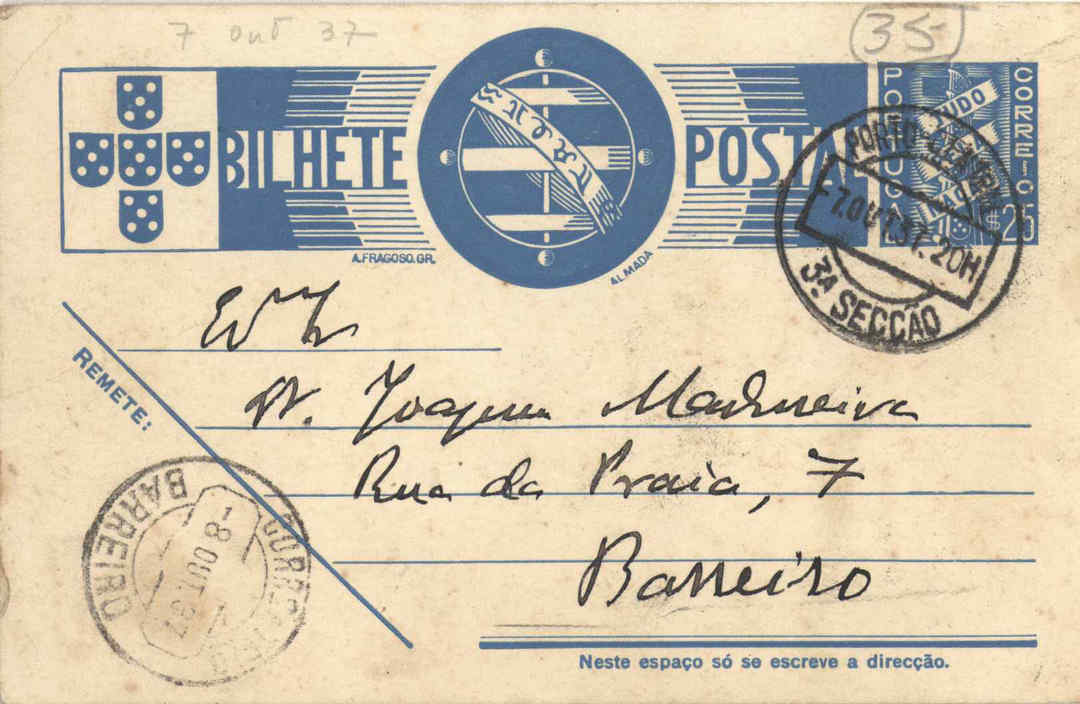 7 out 37
35-
BILHETE POSTAL
PORTUGAL
CORREIO
TUDO
$25
A. FRAGOSO. GR.
ALMADA
PORTO CENTRAL
7.OUT.37.20H
3ª SECÇÃO
REMETE:
Joaquim Madureira
Rua da Praia, 7
Barreiro
BARREIRO
-8 OUT 37
Neste espaço só se escreve a direcção.